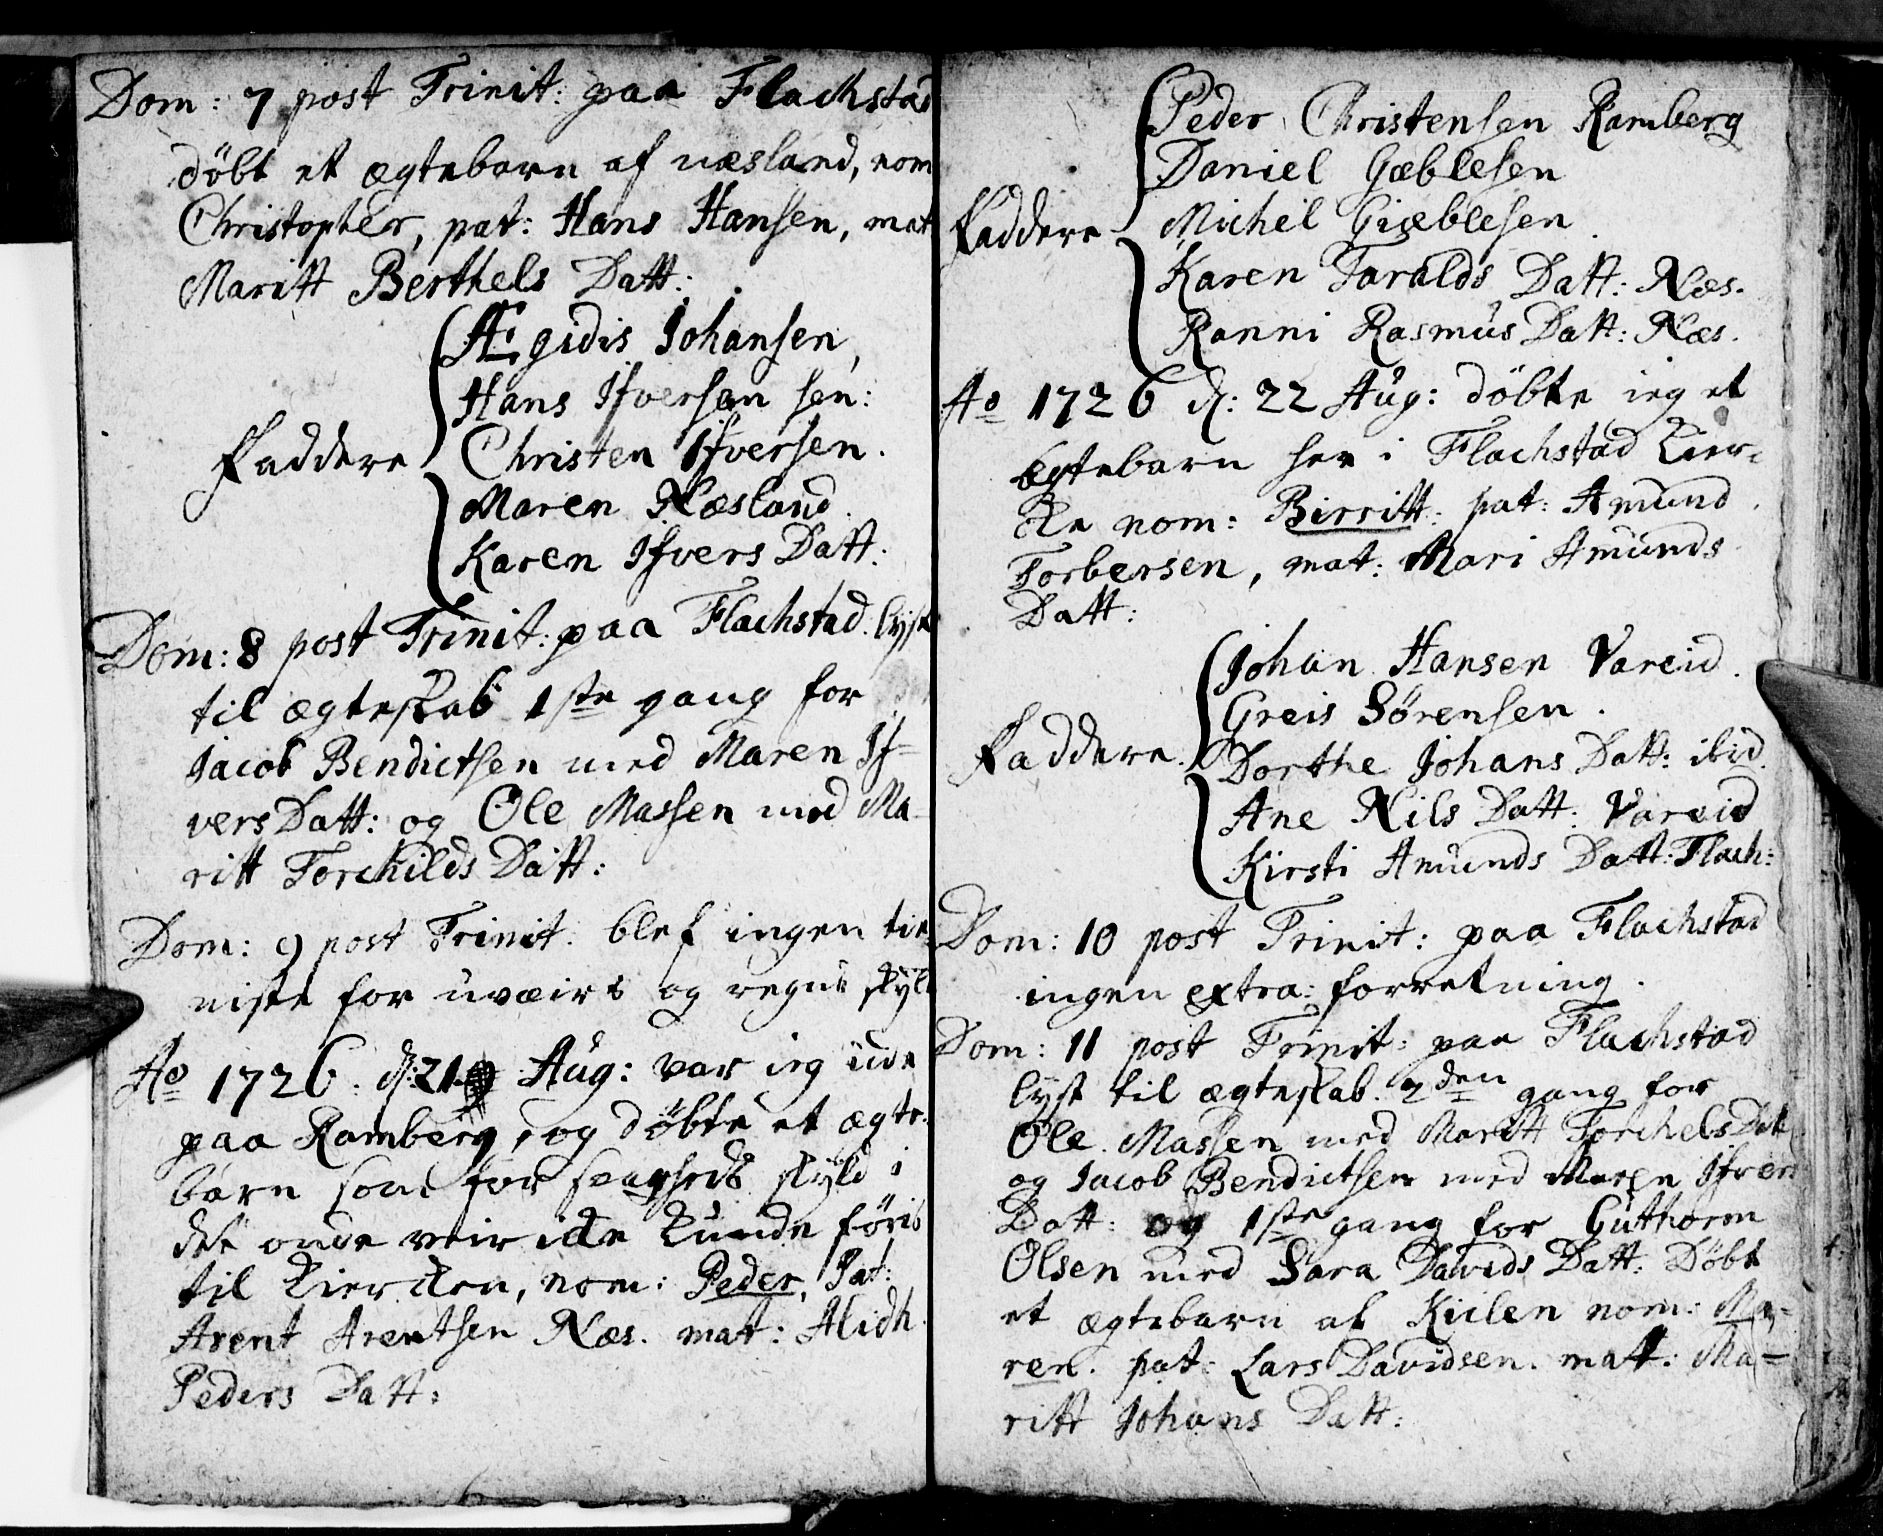 Dom: 7 post Trinit: paa Flachstad
döbt et ægtebarn af næsland, nom
Christopher, pat: Hans Hansen, mat
Maritt Berthels Datt:
Ægidis Johansen,
Hans Ifversen sen:
Faddere Christen Ifversen.
Maren Næsland.
Karen Ifvers Datt:
Dom: 8 post Trinit: paa Flachstad. lyst
til ægteskab 1ste gang for
Jacob Bendictsen med Maren If-
vers Datt: og Ole Massen med Ma-
ritt Torchilds Datt:
Dom: 9 post Trinit: blef ingen tie
niste for uveirs og regns skyld
Ao 1726. d: 21 Aug: var ieg ude
paa Ramberg, og döbte et ægte-
barn som for svagheds skyld i
det onde veir icke kunde föris
til Kiercken, nom: Peder, Pat:
Arent Arentsen Næs. mat: Alidh.
Peders Datt:
Peder Christensen Ramberg
Daniel Gæblesen
Faddere Michel Giæblesen.
Karen Taralds Datt: Næs.
Ranni Rasmus Datt: Næs.
Ao 1726 d: 22 Aug: döbte ieg et
ægtebarn her i Flachstad Kier-
cke nom: Birritt: pat: Amund
Torbersen, mat: Mari Amunds
Datt:
Johan Hansen Vareid.
Greis Sörensen.
Faddere. Dorthe Johans Datt: ibid.
Ane Nils Datt: Vareid
Kirsti Amunds Datt: Flach:
Dom: 10 post Trinit: paa Flachstad
ingen extra: forretning.
Dom: 11 post Trinit: paa Flachstad
lyst til ægteskab. 2den gang for
Ole. Massen med Maritt Torchels Datt
og Jacob Bendictsen med Maren Ifvers
Datt: og 1ste gang for Guttorm
Olsen med Sara Davids Datt: Döbt
et ægtebarn af Kiilen nom: Ma-
ren. pat: Lars Davidsen. matt: Ma-
ritt Johans Datt: